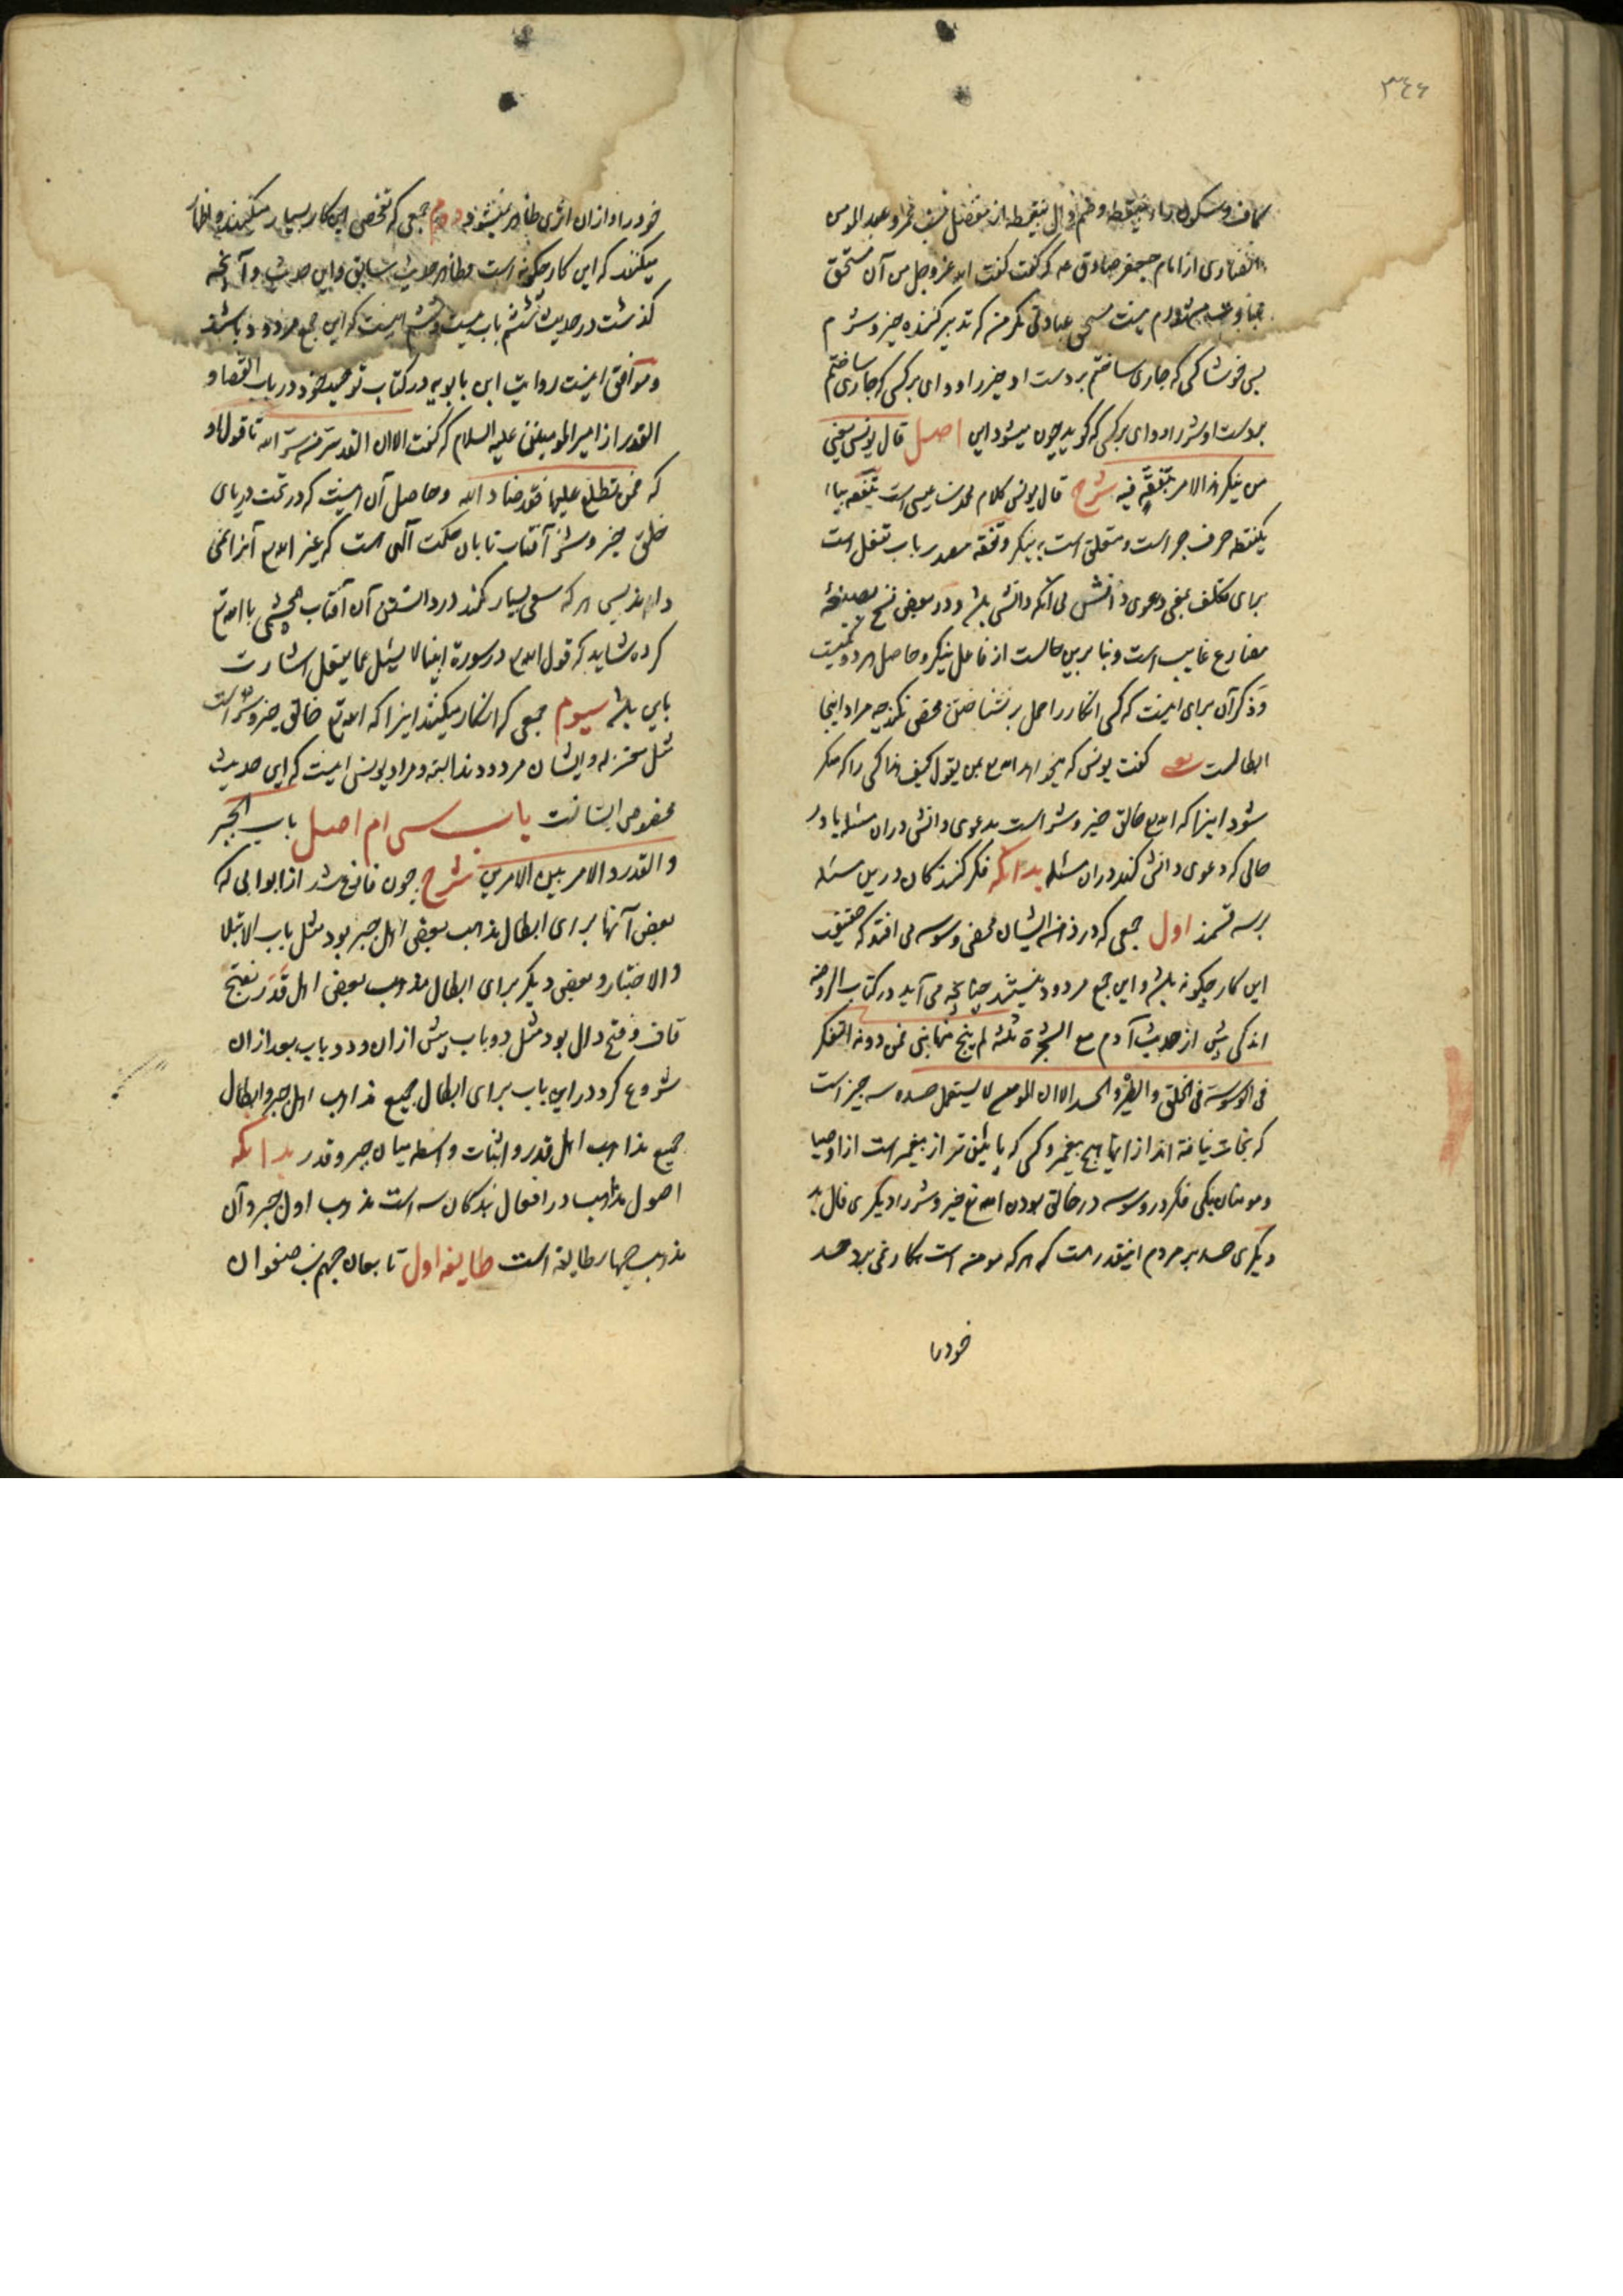 ٣٤٦
کاف و سکون راء بینقطه و ضم دال بینقطه از مفضل بن عمر و عبد المومن
انصاری از امام جعفر صادق عه که گفت گفت الله عزوجل من آن مستحق
عبادتم نیست مستحق عبادتی مگر من که تدبیر کننده خیر و شرم
پس خوشا کسی که جاری ساختم بر دست او خیر را و وای بر کسی که جاری ساختم
بر دست او شر را و وای بر کسی که گوید چون میشود این اصل قال یونس یعنی
من ینکر هذا الامر بتفقه فیه شرح قال یونس کلام محمد بن عیسی است بتفقه بباء
یکنقطه حرف جر است و متعلق است به ینکر و تفقه مصدر باب تفعل است
برای تکلف یعنی دعوی دانش بی آنکه دانش باشد و در بعضی نسخ بصیغهٔ
مضارع غایب است و بنا برین حالست از فاعل ینکر و حاصل هر دو یکیست
و ذکر آن برای اینست که کسی انکار را حمل بر نشناختن محض نکند چه مراد اینجا
ابطالست گفت یونس که میخواهد امام ع بمن یقول کیف هذا کسی را که منکر
شود اینرا که الله تع خالق خیر و شر است بدعوی دانش در آن مسئله یا در
حالی که دعوی دانش کند در آن مسئله بدانکه فکر کنندگان درین مسئله
بر سه قسمند اول جمعی که در ذهن ایشان محض وسوسه می افتد که حقیقت
این کار چگونه باشد و این جمع مردود نیستند چنانچه می آید در کتاب الروضه
اندکی پیش از حدیث آدم مع الشجرة ثلثة لم ینج منها نبی فمن دونه التفکر
فی الوسوسة فی الخلق و الطیرة و الحسد الا ان المومن لا یستعمل حسده سه چیز است
که نجات نیافته اند از آنها هیچ پیغمبر و کسی که پایین تر از پیغمبر است از اوصیا
و مومنان یکی فکر در وسوسه در خالق بودن الله تع خیر و شر را دیگری فال بد
دیگری حسد بر مردم اینقدر هست که هر که مومن است بکار نمی برد حسد
خود را
خود را و از ان اثری ظاهر نمیشود دوم جمعی که تفحص این کار بسیار میکنند و اظهار
میکنند که این کار چگونه است و ظاهر حدیث سابق و این حدیث و آنچه
گذشت در حدیث ششم باب بیست و ششم اینست که این جمع مردود باشند
و موافق اینست روایت ابن بابویه در کتاب توحید خود در باب القضا و
القدر از امیر المومنین علیه السلام که گفت الا ان القدر سر من سر الله تا قول او
که فمن تطلع علیها فقد ضاد الله و حاصل آن اینست که در تحت دریای
خلق خیر و شر آفتاب تابان حکمت الهی است که غیر الله تع آنرا نمی
داند پس هر که سعی بسیار کند در دانستن آن آفتاب همچشمی با الله تع
کرده شاید که قول الله تع در سورة انبیا لا یسئل عما یفعل اشارت
باین باشد سیوم جمعی که انکار میکنند اینرا که الله تع خالق خیر و شر است
مثل معتزله و ایشان مردودند البته و مراد یونس اینست که این حدیث
مخصوص ایشانست باب سی ام اصل باب الجبر
و القدر و الامر بین الامرین شرح چون فارغ شد از ابوابی که
بعض آنها برای ابطال مذهب بعضی اهل جبر بود مثل باب الابتلا
و الاختبار و بعضی دیگر برای ابطال مذهب بعضی اهل قدر بفتح
قاف و فتح دال بود مثل دو باب پیش از ان و دو باب بعد از ان
شروع کرد در این باب برای ابطال جمیع مذاهب اهل جبر و ابطال
جمیع مذاهب اهل قدر و اثبات واسطه میان جبر و قدر بدانکه
اصول مذاهب در افعال بندگان سه است مذهب اول جبر و آن
مذهب چهار طایفه است طایفه اول تابعان جهم بن صفوان